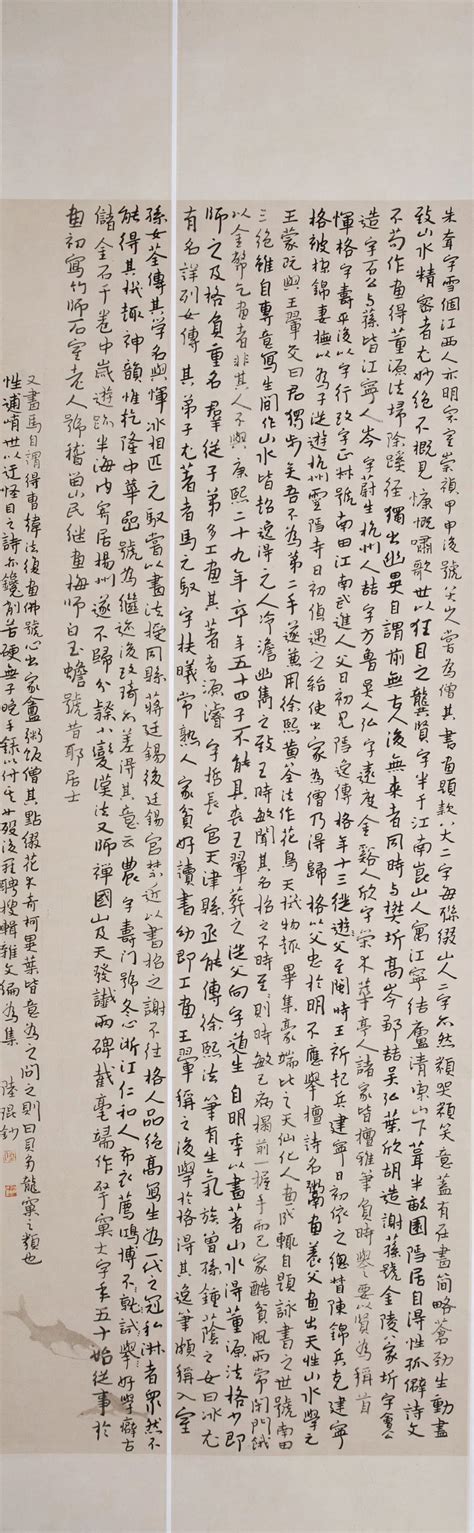 朱耷字雪個江西人亦明宗室崇禎甲申後號尖山嘗為僧其書畫題款八大二字每聯綴二字亦然類哭類笑意蓋有在畫簡略蒼勁生動盡
致山水精密者尤妙絕不概見慷慨嘯歌世以狂目之龔賢字半千江南崑山人寓江寧結廬清凉山下葺半畝園隱居自得性孤僻詩文
不苟作畫得董源法埽除蹊徑獨出幽異自謂前無古人後無來者同時与樊圻高岑鄒喆吴弘葉欣胡造謝蓀號金陵八家圻字會公
造字石公与蓀皆江寧人岑字蔚生杭州人喆字方魯吴人弘字遠度金谿人欣字榮木華亭人諸家皆擅雅筆負時譽要以賢為稱首
惲格字壽平後以字行改字正叔號南田江南武進人父日初見隱逸傳格年十三從遊父至閩時王祈起兵建寧日初依之總督陳錦兵克建寧
格被掠錦妻撫以為子從遊杭州靈隱寺日初偵遇之紿使出家為僧乃得歸格以父忠於明不應舉擅詩名鬻畫養父畫出天性山水學元
王蒙既與王翬交曰君獨步矣吾不為第二手遂兼用徐熙黃荃法作花鳥天機物趣畢集豪端比之天仙化人畫成輒自題詠書之世號南田
三絕雖自專意寫生間作山水皆超逸得元人冷澹幽雋之致王時敏聞其名招之不時至至則時敏已病榻前一握手而已家酷貧風雨常閉門餓
以金幣乞畫者非其人不與康熙二十九年卒年五十四子不能具喪王翬葬之從父向字道生自明季以畫著山水得董源法格少即
師之及格負重名羣從子弟多工畫其著者源濬字哲長官天津縣丞能傳徐熙法筆有生氣族曾孫鍾蔭之女曰冰尤
有名詳列女傳 其弟子尤著者馬元馭字扶曦常熟人家貧好讀書幼即工畫王翬稱之後學於格得其逸筆頗稱入室
孫女荃傳其學名與惲冰相匹元馭嘗以畫法授同縣蔣廷錫後廷錫官禁近以書招之謝不仕格人品絕高寫生為一代之冠私淑者眾然不
能得其機趣神韻惟乾隆中華嵒號為繼迹後改琦亦差得其意云農字壽門號冬心浙江仁和人布衣薦鴻博不就試舉好學癖古
儲金石千卷中歲遊跡半海內寄居揚州遂不歸分隸小變漢法又師禪國山及天發讖兩碑截毫端作擘窠大字年五十始從事於
畫初寫竹師石室老人號稽留山民繼畫梅師白玉蟾號昔耶居士
又畫馬自謂得曹韓法復畫佛號心出家盦粥飯僧其點綴花木奇柯異葉皆意為之問之則曰貝多龍窠之類也
性逋峭世以迂怪目之詩亦鑱削苦硬無子晚手錄以付其女歿後羅聘搜輯雜文編為集 陸琨鈔